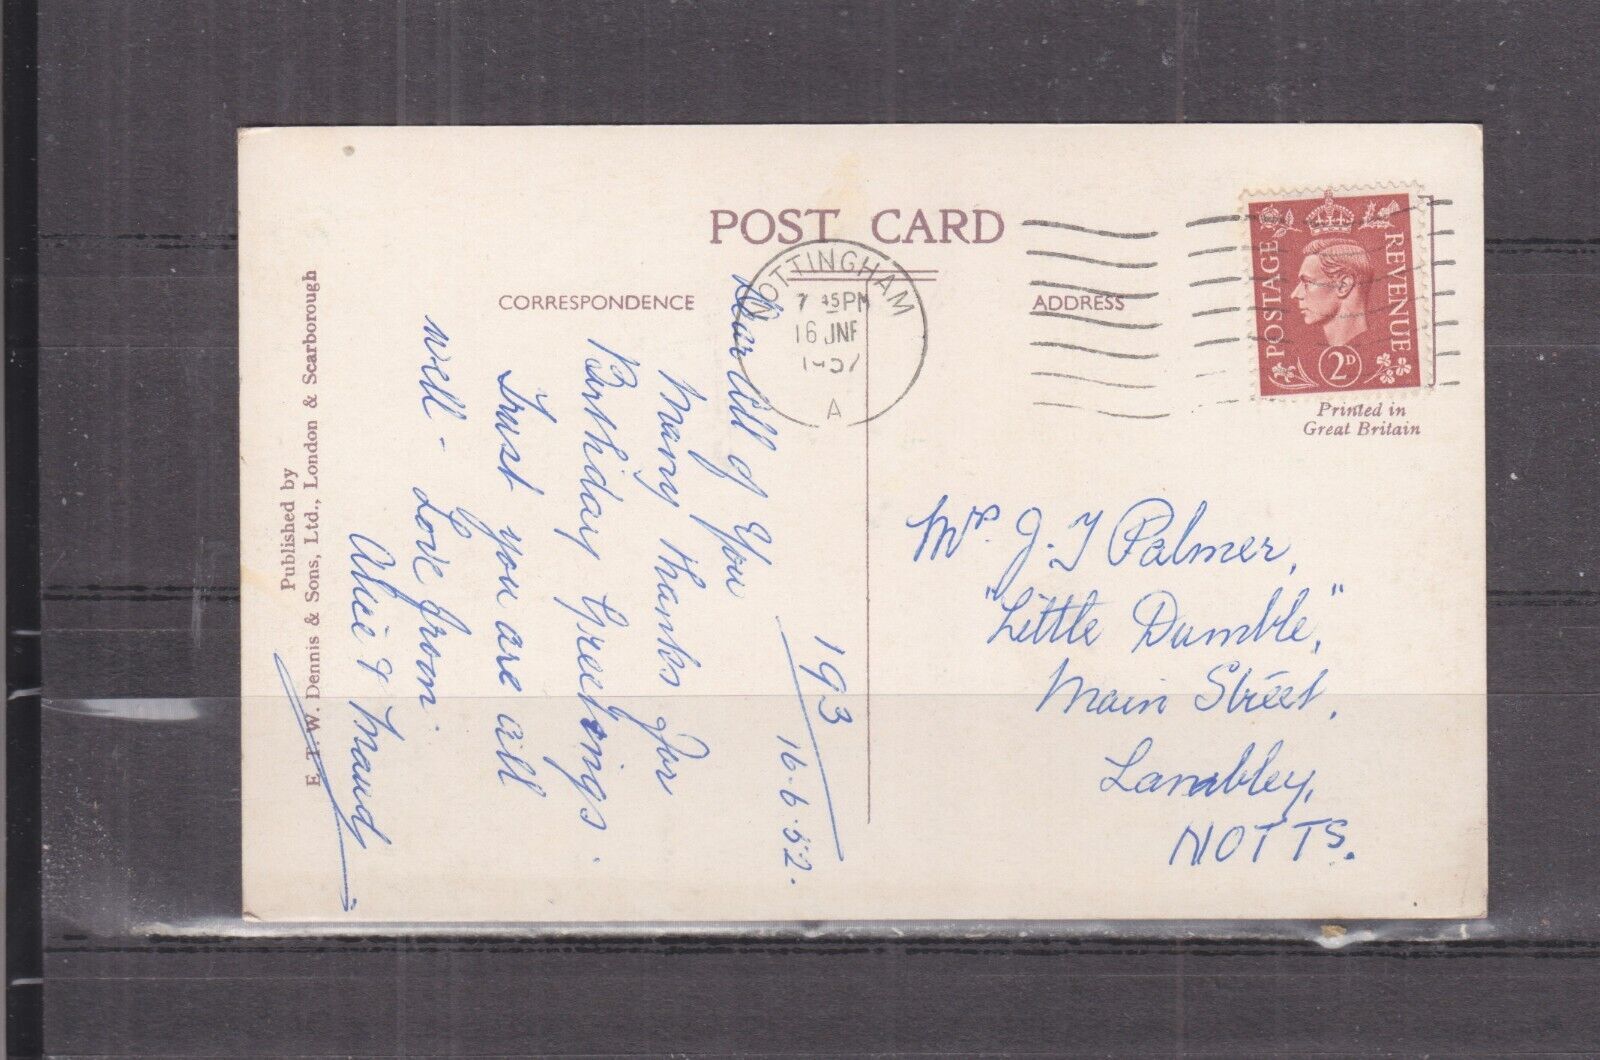 POST CARD
CORRESPONDENCE
ADDRESS
NOTTINGHAM
45PM
16 JNE
A
POSTAGE
REVENUE
2D
Printed in
Great Britain
Published by
E. T. W. Dennis & Sons, Ltd., London & Scarborough
193
16-6-52.
Dear All of You
Many thanks for
Birthday Greetings.
Trust you are all
well - Love from.
Alice & Maud
Mrs J. T Palmer,
"Little Dumble,"
Main Street,
Lambley,
NOTTS.